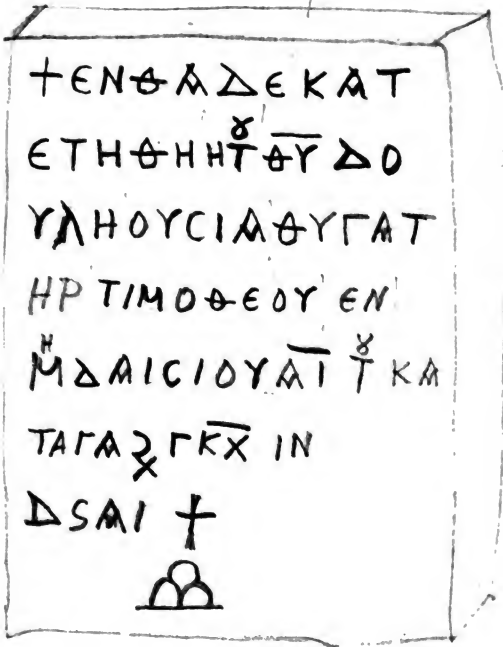 +ΕΝΘΑΔΕΚΑΤ
ΕΤΗΘΗΗΤȣΘ̅Υ̅ ΔΟ
ΥΛΗΟΥCΙΑΘΥΓΑΤ
ΗΡ ΤΙΜΟΘΕΟΥ ΕΝ
ΜΗΔΑΙCΙΟΥΑ̅Ι̅ Τȣ ΚΑ
ΤΑΓΑΖΧ ΓΚ̅Χ̅ ΙΝ
ΔSΑΙ †